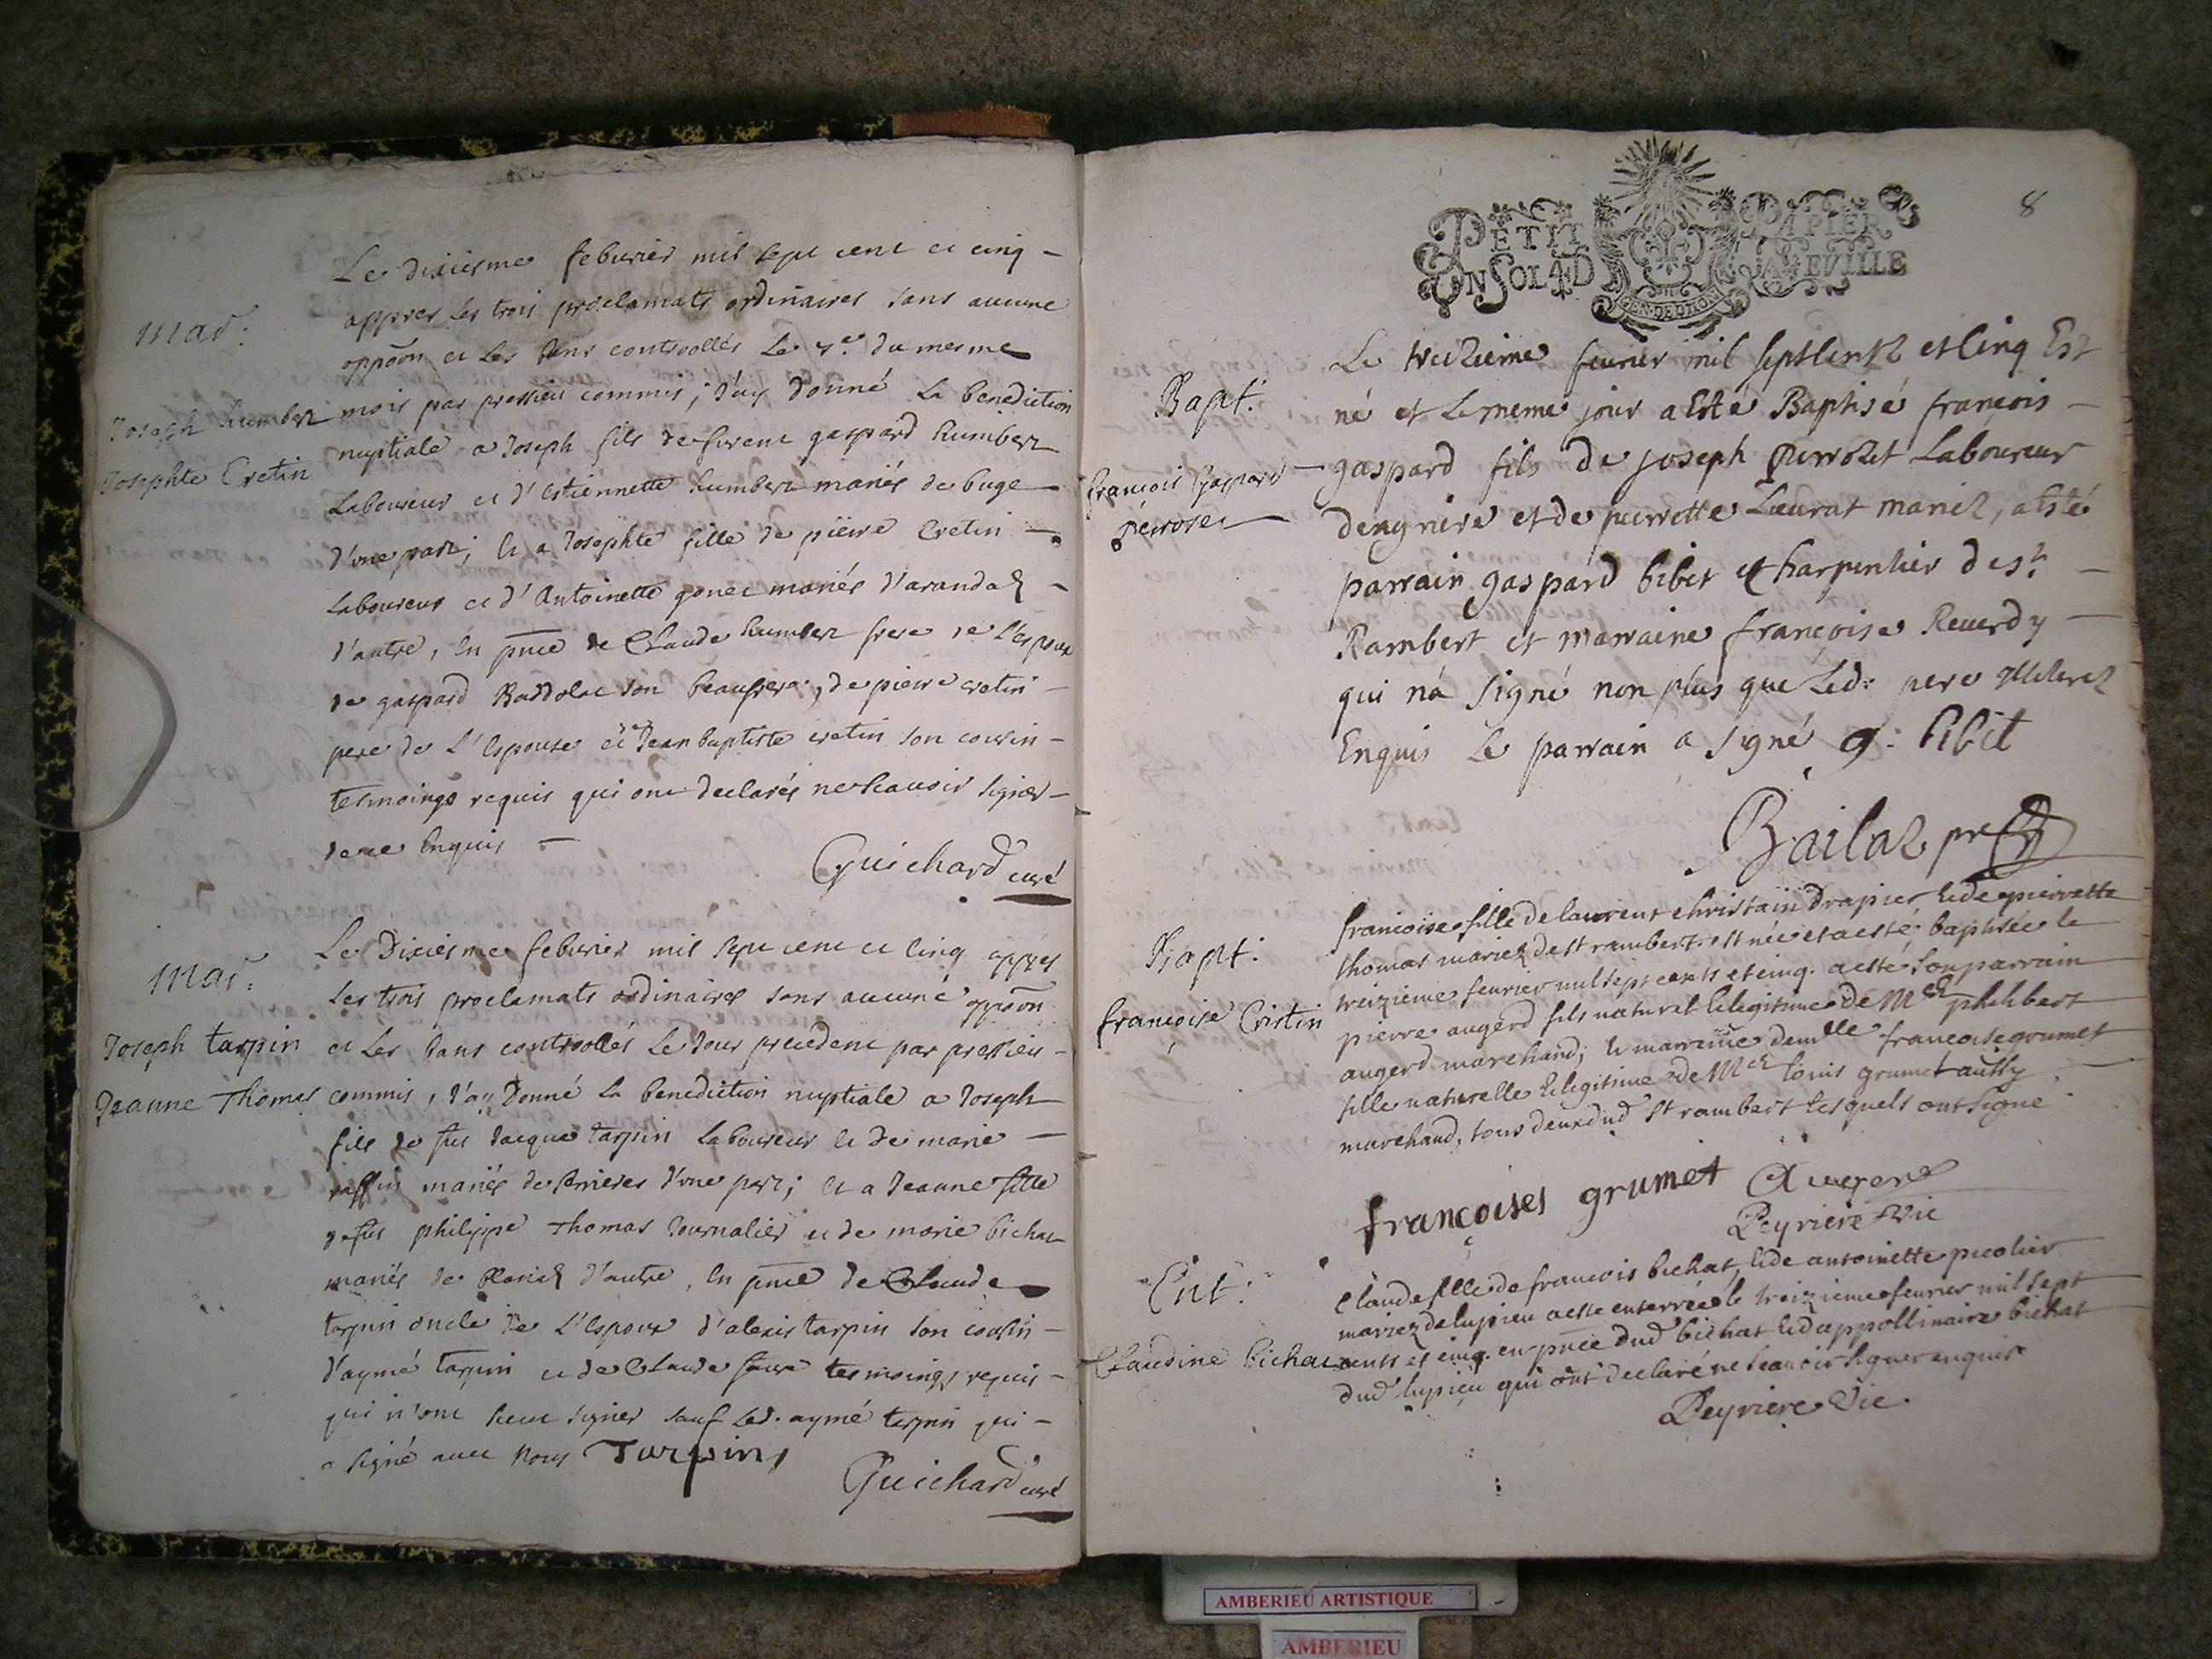 Le dixiesme feburier mil sept cent et cinq –
appres les trois proclamats ordinaires sans aucune
mar:
oppõon et les bans controollés Le 7.e du mesme
mois par pressieu commis; J'ay donné La benediction
Joseph humbert
nuptiale a Joseph fils de furent gaspard humbert
Josephte Cretin
Laboureur et d'estiennette humbert mariés de buge
d'une part; Et a Josephte fille de pierre Cretin –
Laboureur et d'Antoinette gonet mariés d'arandaz –
d'autre, En pnce de Claude humbert frere de L'espoux
de gaspard son beaufrere, de pierre cretin –
pere de L'Espouse et Jean baptiste cretin son cousin –
tesmoings requis qui ont declarés ne scauoir signer –
de ce Enquis –
Guichard curé
Le Dixiesme feburier mil sept cent et cinq appres
mar:
Les trois proclamats ordinaires sans aucune oppõon
Joseph tarpin
et Les bans controollés Le Jour precedent par pressieu –
Jeanne Thomas
commis, J'ay Donné La benediction nuptiale a Joseph
fils de feu Jacque tarpin Laboureur et de marie –
mariés de d'une part; et a Jeanne fille
de feu philippe Thomas Journalier et de marie bichat
mariés de d'autre, En pnce de Claude
tarpin oncle de L'Espoux d'alexis tarpin son cousin –
d'aymé tarpin et de Claude tesmoings requis –
qui n'ont sceu signer sauf Led. aymé tarpin qui –
a signé auec Nous Tarpin
Guichard curé
8
PETIT PAPIER
UN SOL 4 D LA FEUILLE
GEN. DE DIION
Le treizieme feurier mil septcentz et Cinq Est
Bapt:
né et Le meme jour a Esté Baptisé francois –
francois Gaspard
gaspard fils de joseph perrozet Laboureur
perroset
et de pierrette Leurat mariez, a Esté
parrain gaspard bibet charpentier de st. –
Rambert et marraine françoise Reuerdy –
qui n'a signé non plus que Led: pere
Enquis Le parrain a signé g: bibet
Bailaz
francoise fille de laurent christain drapier et de pierrette
Bapt:
thomas mariez de st rambert. est née et a esté baptisée le
treizieme feurier mil sept cents et cinq. a esté son parrain
francoise Cristin
pierre augerd fils naturel et legitime de Mre philibert
augerd marchand; et marraine demlle françoise grumet
fille naturelle et legitime de Mre louis grumet aussy –
marchand, tous deux dud st rambert lesquels ont signé
françoises grumet Augerd
Peyriere vic
Claude fille de francois bichat, et de antoinette
Ent:
mariez de lupieu a esté enterrée le treizieme feurier mil sept
Claudine bichat
cents et cinq. en pnce dud bichat et d'appollinaire bichat
dud lupieu qui ont declaré ne scauoir signer enquis
Peyriere vic.
AMBERIEU ARTISTIQUE
AMBERIEU